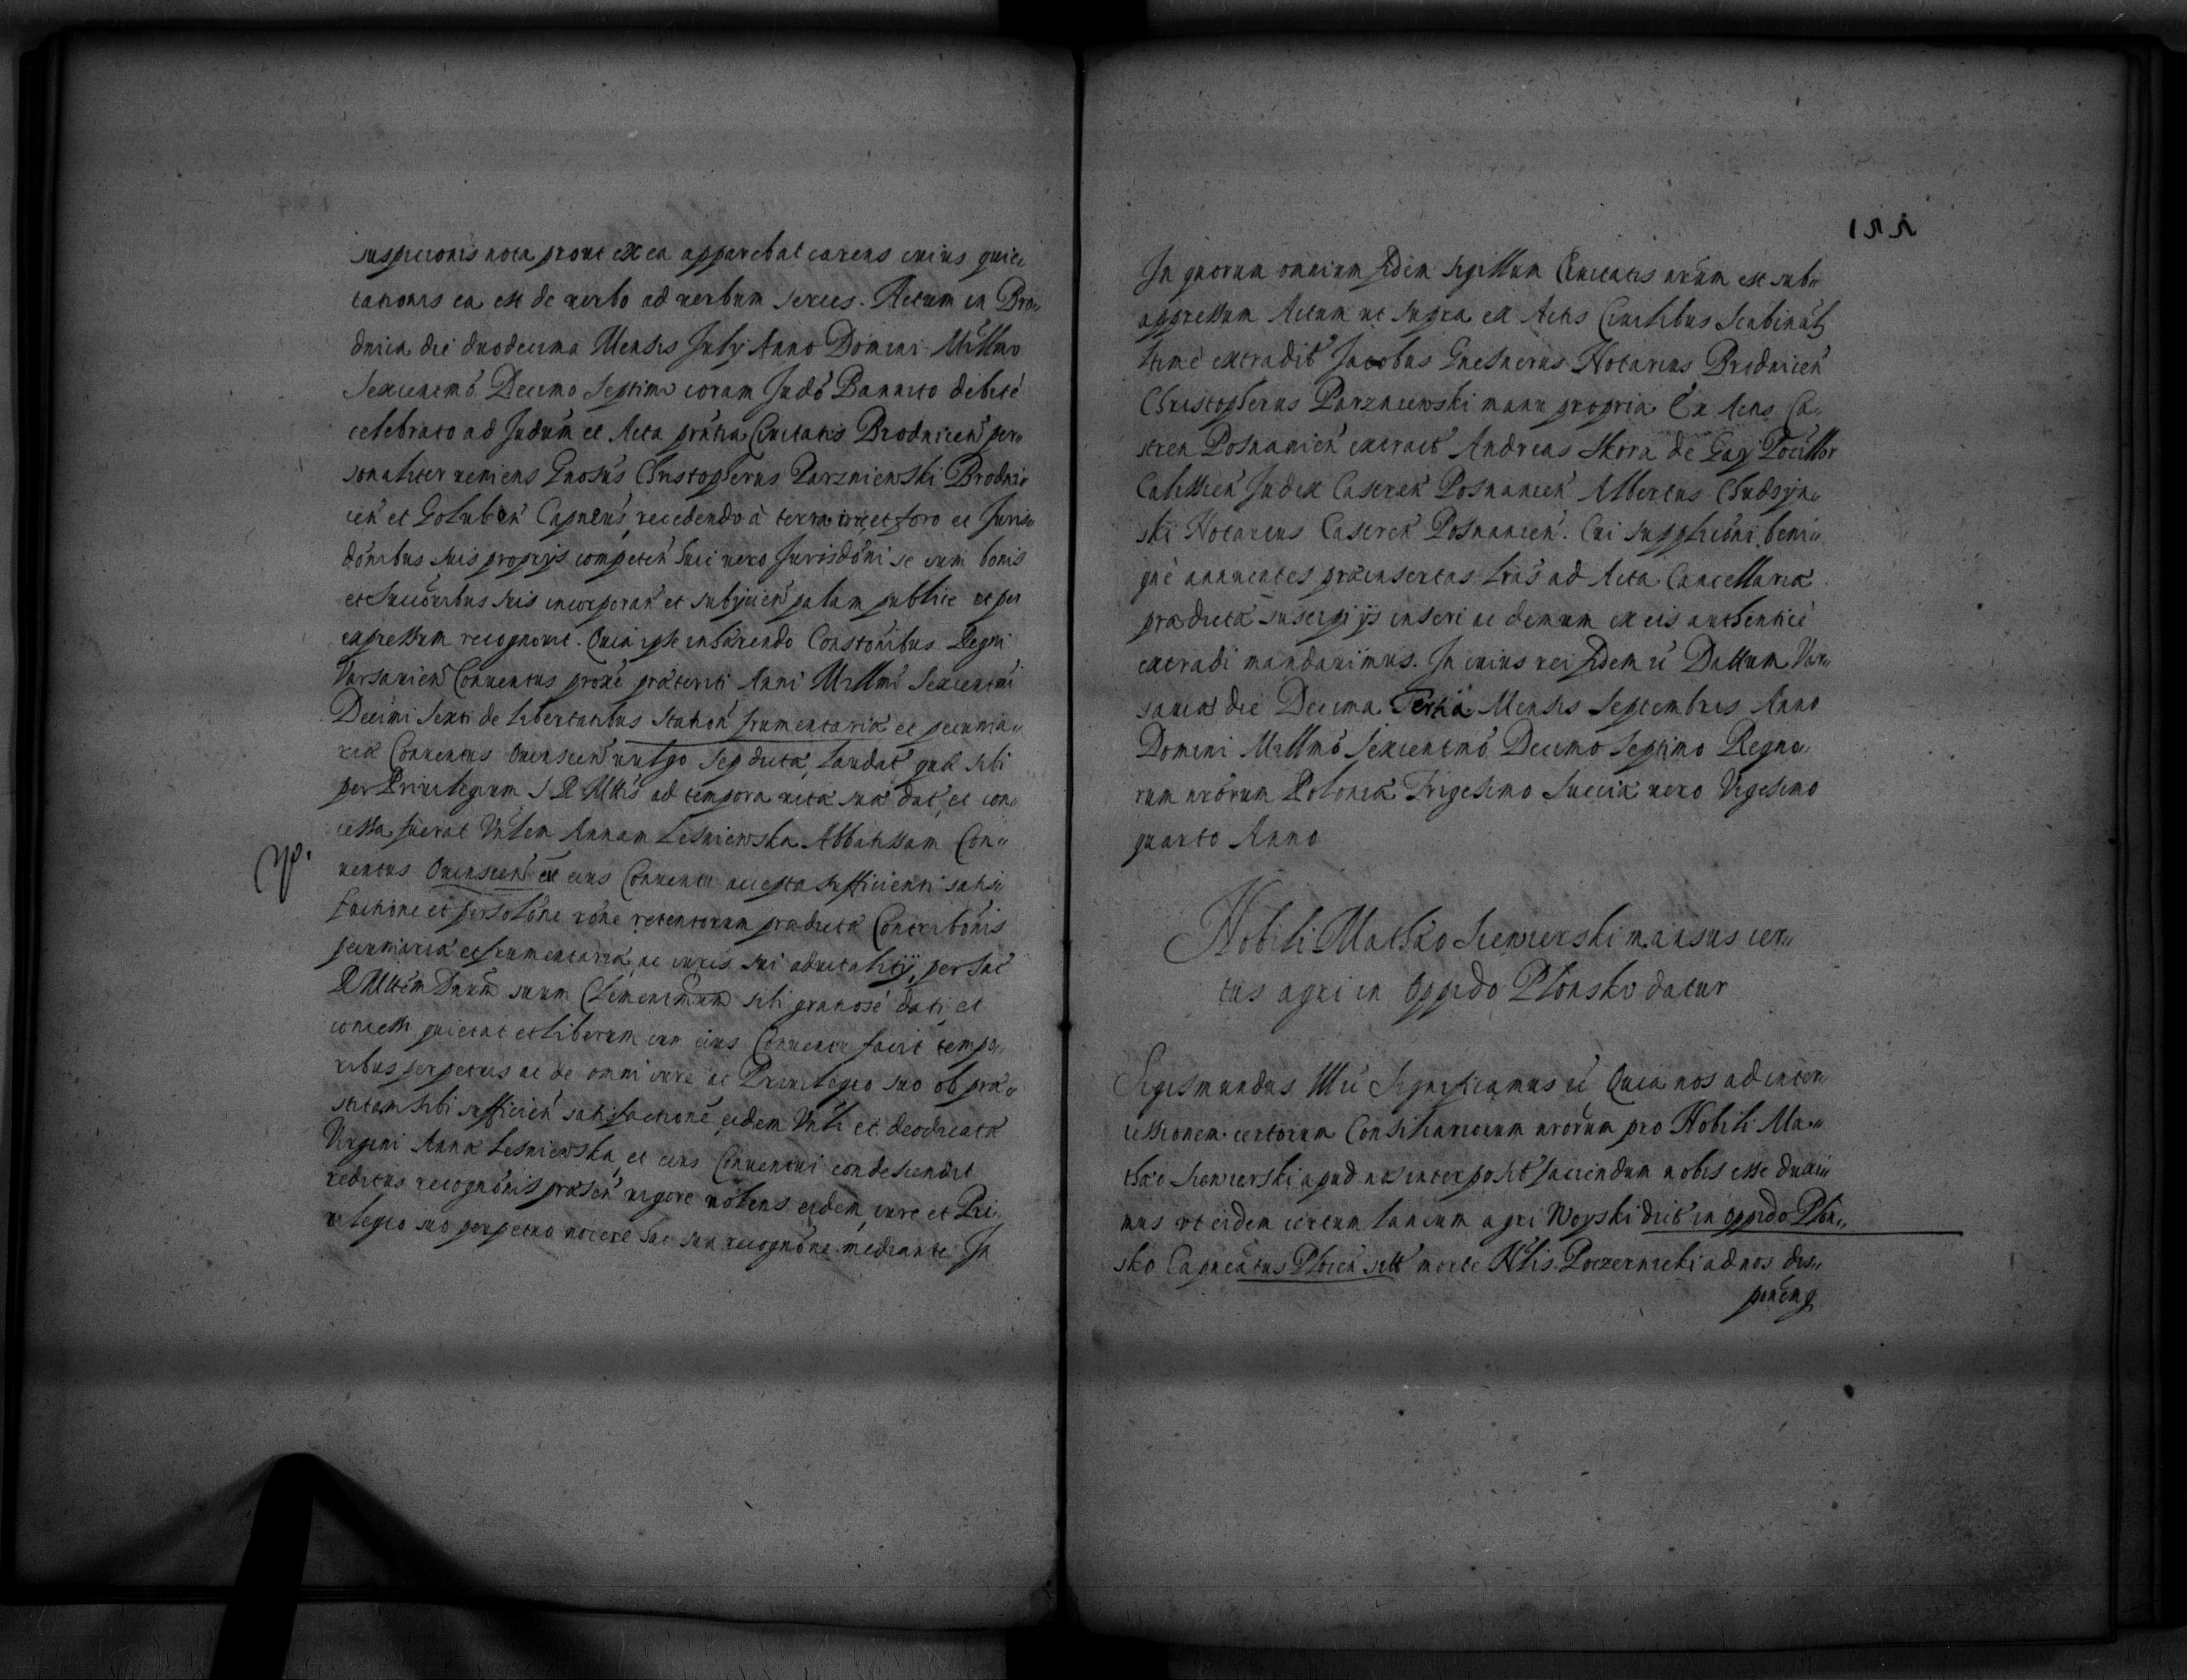 suspicionis nota prout ex ea apparebat carens cuius quie„
tationis ea est de verbo ad verbum series. Actum in Bro„
dnica die duodecima Mensis July Anno Domini Millmo
Sexcentmo Decimo Septimo coram Judo Bannito debite
celebrato ad Judum et Acta prntia Civitatis Brodnicen per„
sonaliter veniens Gnosus Christopherus Parzniewski Brodni„
cen et Goluben Capneus, recedendo a terra et foro et Juris„
donibus suis proprys competen huic vero Jurisdoni se cum bonis
et Succoribus suis incorporan et subijcien palam publice et per
expressum recognovit. Quia ipse inhærendo Constonibus Regni
Varsavien Conventus proxe præteriti Anni Millmi Sexcentmi
Decimi Sexti de libertatibus Station frumentariæ et pecunia„
riæ Conventus Owinscen vulgo Sep dictæ, Laudat quæ sibi
per Privilegium S R Mttis ad tempora vitæ suæ dat, et con„
cessa fuerat Vnlem Annam Lesniewska Abbatissam Con„
ventus Owinscen et eius Conventu accepta sufficienti satis„
factione et persolone rone retentorum prædictæ Contribonis
pecuniariæ et frumentariæ, ac iuris sui advitalitij, per Sac
R Mttem Dnum suum Clementmum sibi gratiose dati et
concessi quietat et liberam cum eius Conventu facit tempo„
ribus perpetuis ac de omni iure ac Privilegio suo ob præ„
stitam sibi sufficien satisfactione, eidem Vnli et deodicatæ
Virgini Annæ Lesniewska, et eius Conventui condescendit
reditus recognonis præsen vigore nolens eidem iure et Pri„
vilegio suo perpetuo nocere hac sua recognone mediante. In
155
In quorum omnium fidem sigillum Civitatis nrum est sub„
appressum Actum ut supra ex Actis Civilibus Scabinal
ltime extradit Jacobus Gnesnerus Notarius Brodnicen
Christopherus Parzniewski manu propria Ex Actis Ca„
stren Posnanien extract Andreas Skora de Gay
Calissien Judex Castren Posnanien Albertus Chudzyn„
ski Notarius Castren Posnanien. Cui supplicioni beni„
gne annuentes præinsertas lras ad Acta Cancellariæ
prædictæ suscipi ijs inseri ac demum ex eis authentice
extradi mandavimus. In cuius rei fidem ec Dattum Var„
saviæ die Decima Tertia Mensis Septembris Anno
Domini Millmo Sexcentmo Decimo Septimo Regno„
rum nrorum Poloniæ Trigesimo Sueciæ vero Vigesimo
quarto Anno
Nobili Mathæo mansus cer„
tus agri in Oppido Plonsko datur
Sigismundus III ec Significamus ec Quia nos ad inter„
cessionem certorum Consiliariorum nrorum pro Nobili Ma„
thæo apud nos interposit faciendum nobis esse duxi„
mus vt eidem certum laneum agri Woyski dict in oppido Plon„
sko Capneatus Plocen sitt morte Nlis ad nos dis„